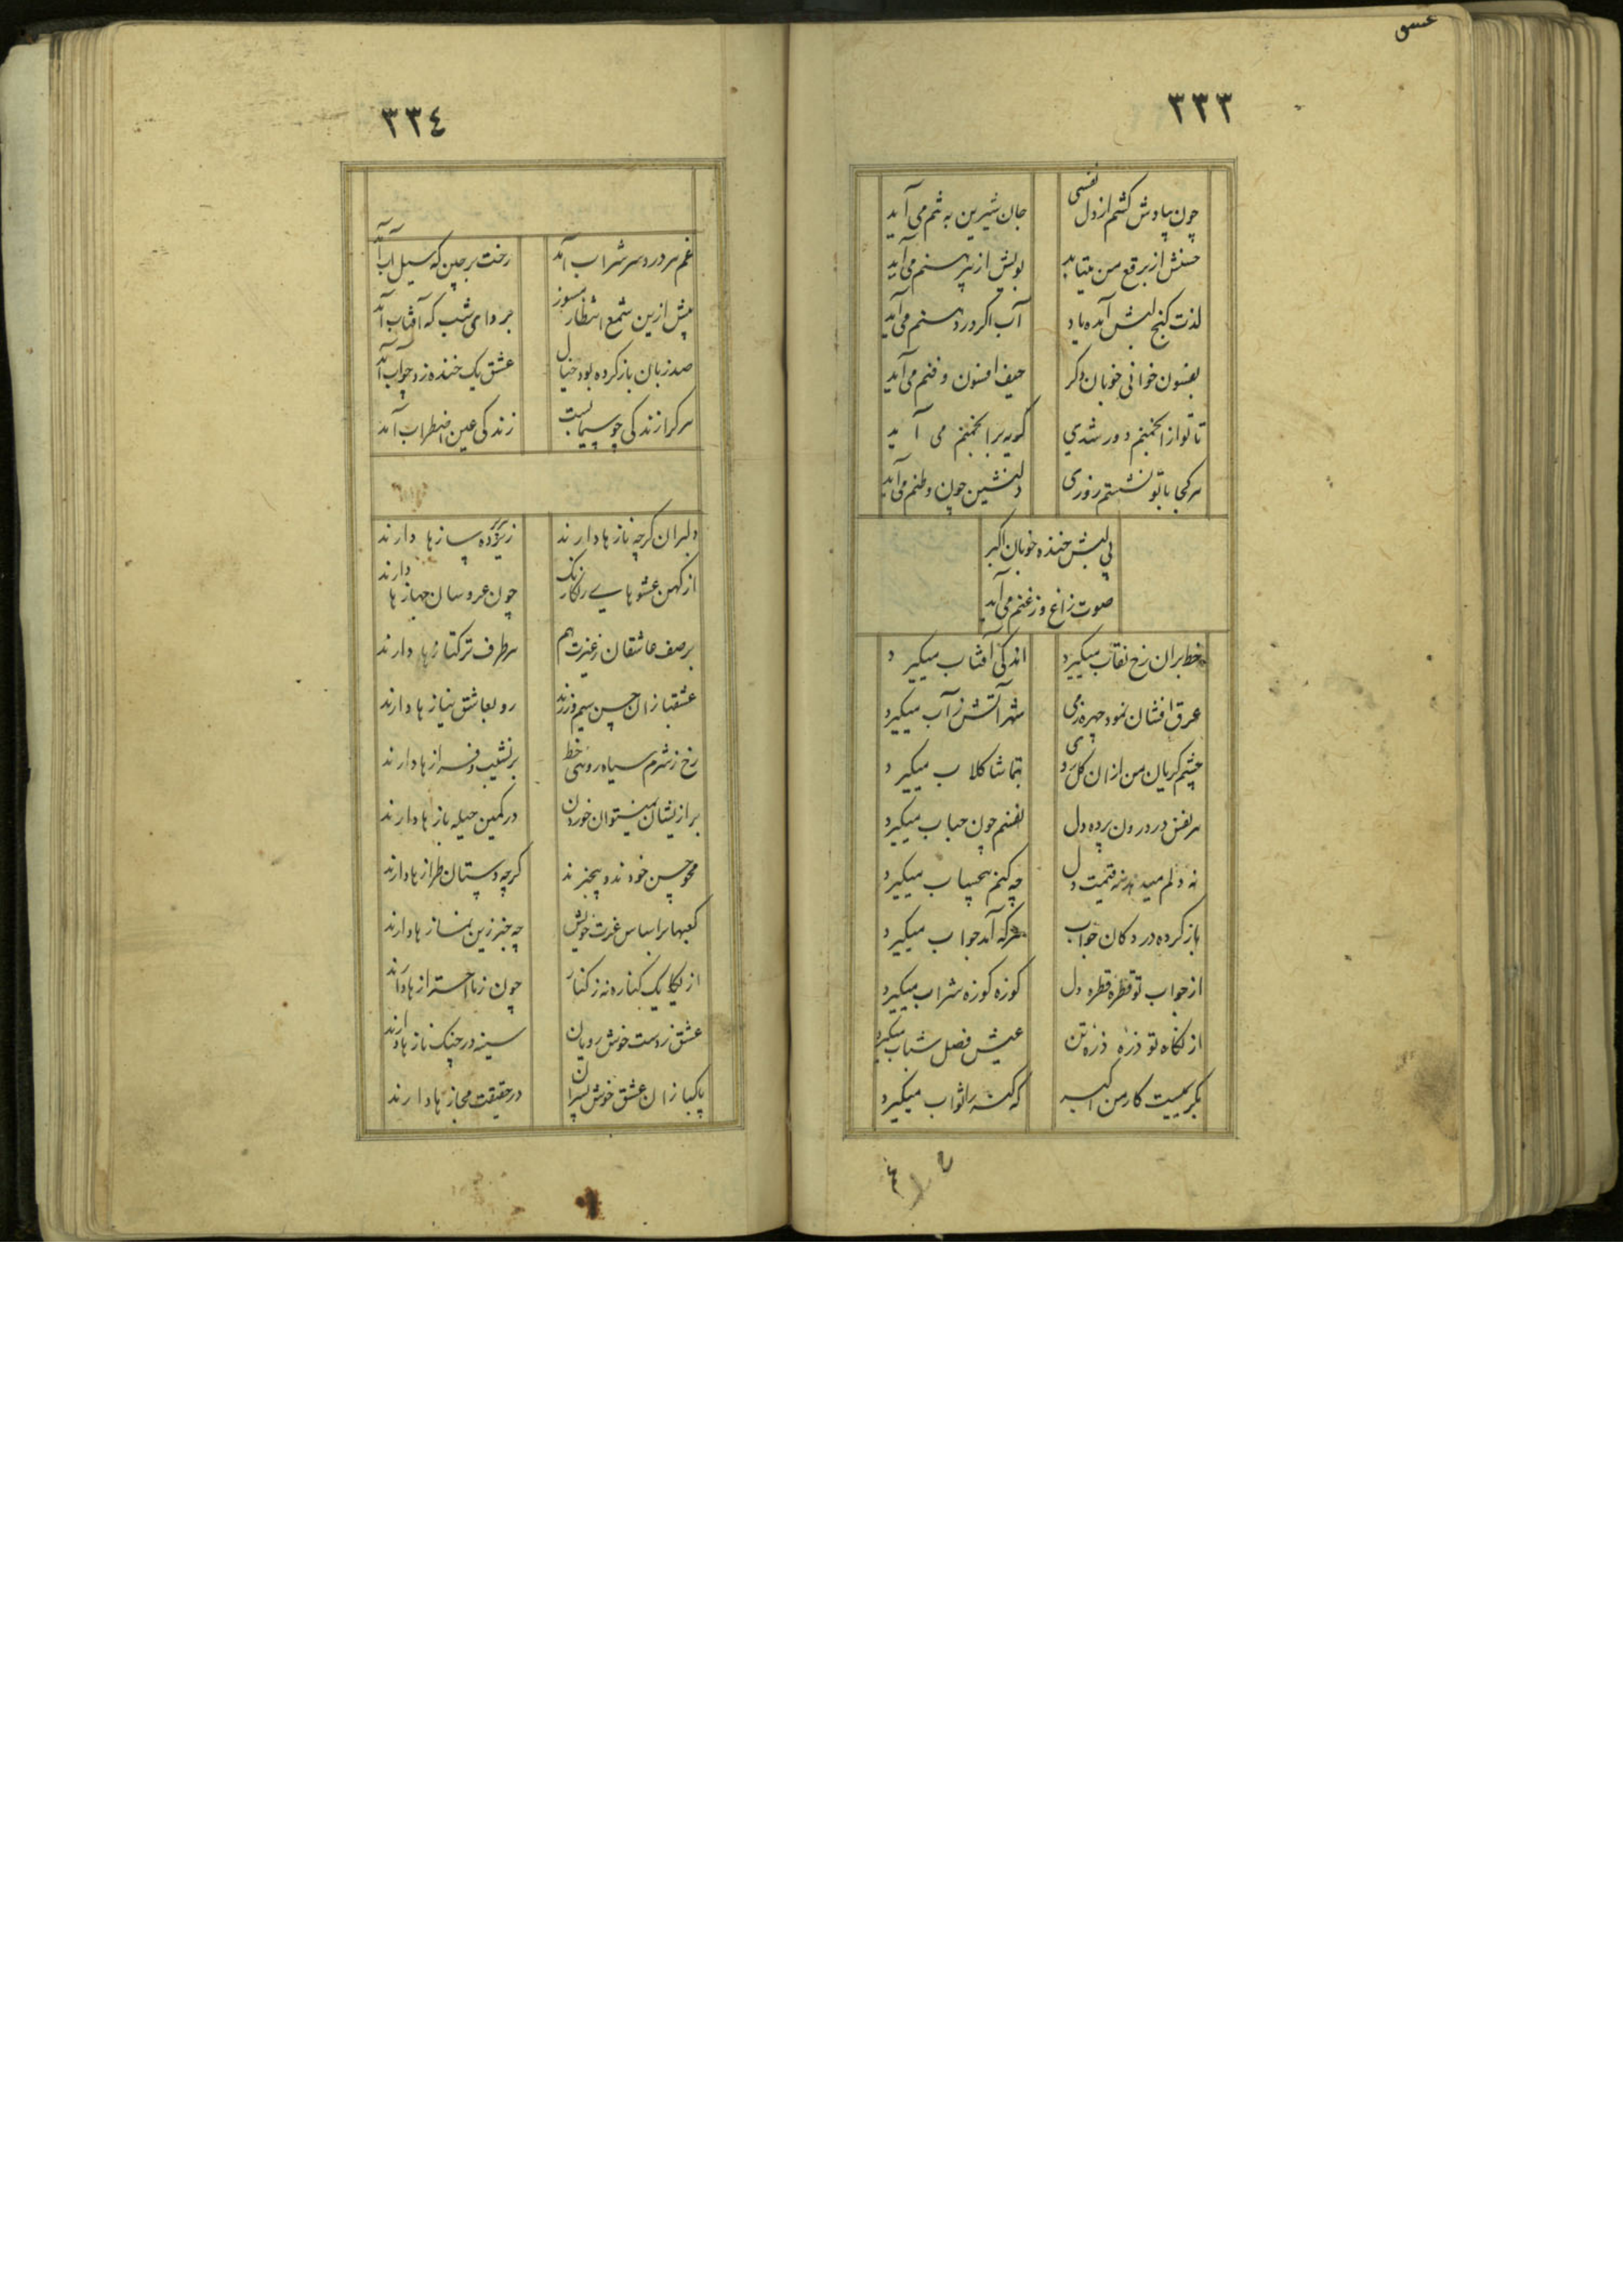 عشق
٣٣٣
چون بیادش کشم از دل نفسی جان شیرین به تنم می آید
حسنش از برقع من میتابد بویش از پیرهنم می آید
لذت کنج لبش آمده یاد آب اگر در دهنم می آید
بفسون خوانی خوبان دگر حیف افسون و فنم می آید
تا تو از انجمنم دور شدی گریه بر انجمنم می آید
هر کجا با تو نشستم روزی دلنشین چون وطنم می آید
بی لبش خنده خوبان اکبر
صوت زاغ و زغنم می آید
خط بران رخ نقاب میگیرد اندکی آفتاب میگیرد
عرق افشان نمود چهره ز می شهر آتش ز آب میگیرد
چشم گریان من از ان گل روی بتماشا گلاب میگیرد
هر نفس در درون پرده دل نفسم چون حباب میگیرد
نه دلم میدهد نه قیمت دل چه کنم بیحساب میگیرد
باز کرده در دکان جواب هر که آمد جواب میگیرد
از جواب تو قطره قطره دل کوزه کوزه شراب میگیرد
از نگاه تو ذره ذره تن عیش فصل شباب میگیرد
کار من اکبر که را ثواب میگیرد
٣٣٤
غم مر درد سر شراب آمد رخت برچین که سیل آب آمد
پیش ازین شمع انتظار مسوز بر و ای شب که آفتاب آمد
صد زبان باز کرده بود خیال عشق یک خنده زد جواب آمد
سر گر از زندگی چو سیمابست زندگی عین اضطراب آمد
دلبران گرچه ناز ها دارند زیر پرده ساز ها دارند
از کهن عشوهای رنگارنگ چون عروسان جهاز ها دارند
بر صف عاشقان ز غیرت هم هر طرف ترکتاز ها دارند
عشقبازان حسن سیم و زرند رو بعاشق نیاز ها دارند
رخ ز شرم سیاه رویی خط بر نشیب و فراز ها دارند
بر ازیشان نمیتوان خوردن در کمین حیله باز ها دارند
محو حسن خودند و بیخبرند گرچه دستان طراز ها دارند
کعبها بر اساس غیرت خویش چه خبر زین نماز ها دارند
از یکایک کناره نه ز کنار چون ز ما احتراز ها دارند
عشق ز دست خوش رویان سینه در چنگ ناز ها دارند
پاکبازان عشق خوش پسران در حقیقت مجاز ها دارند